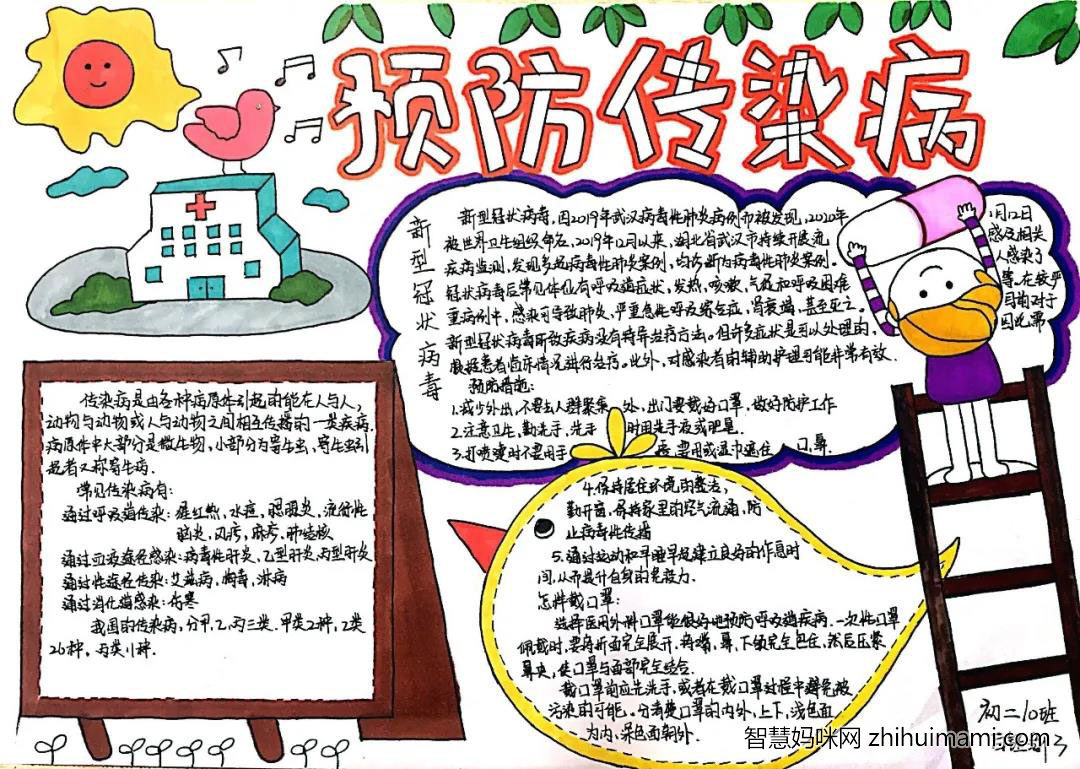 预防传染病
新型冠状病毒
新型冠状病毒,因2019年武汉病毒性肺炎病例而被发现,2020年
1月12日
被世界卫生组织命名,2019年12月以来,湖北省武汉市持续开展流
感及相关
疾病监测,发现多起病毒性肺炎案例,均诊断为病毒性肺炎案例。
人感染了
冠状病毒后常见体征有呼吸道症状,发热,咳嗽,气促和呼吸困难
等,在较严
重病例中,感染可导致肺炎,严重急性呼吸综合症,肾衰竭,甚至死亡。
目前对于
新型冠状病毒所致疾病没有特异治疗方法。但许多症状是可以处理的,
因此需
根据患者临床情况进行治疗。此外,对感染者的辅助护理可能非常有效。
预防措施:
1.减少外出,不要去人群聚集 外,出门要戴好口罩,做好防护工作
2.注意卫生,勤洗手,洗手 时用洗手液或肥皂.
3.打喷嚏时不要用手 要用或湿巾遮住 口,鼻.
4.保持居住环境的整洁,
勤开窗,保持家里的空气流通,防
止病毒性传播
5.通过运动和早睡早起建立良好的作息时
间,从而提升自身的免疫力.
怎样戴口罩:
选择医用外科口罩能很好地预防呼吸道疾病.一次性口罩
佩戴时,要将折面完全展开.将嘴,鼻,下颌完全包住,然后压紧
鼻夹,使口罩与面部完全结合.
戴口罩前应先洗手,或者在戴口罩过程中避免被
污染的可能,分清楚口罩的内外,上下,浅色面
为内,深色面朝外.
传染病是由各种病原体引起的能在人与人,
动物与动物或人与动物之间相互传播的一类疾病.
病原体中大部分是微生物,小部分为寄生虫,寄生虫引
起者又称寄生病.
常见传染病有:
通过呼吸道传染:猩红热,水痘,腮腺炎,流行性
脑炎,风疹,麻疹,肺结核
通过血液途径感染:病毒性肝炎,乙型肝炎,丙型肝炎
通过性途径传染:艾滋病,梅毒,淋病
通过消化道感染:伤寒
我国的传染病,分甲,乙,丙三类.甲类2种,乙类
26种,丙类11种.
初二10班
智慧妈咪网 zhihuimami.com